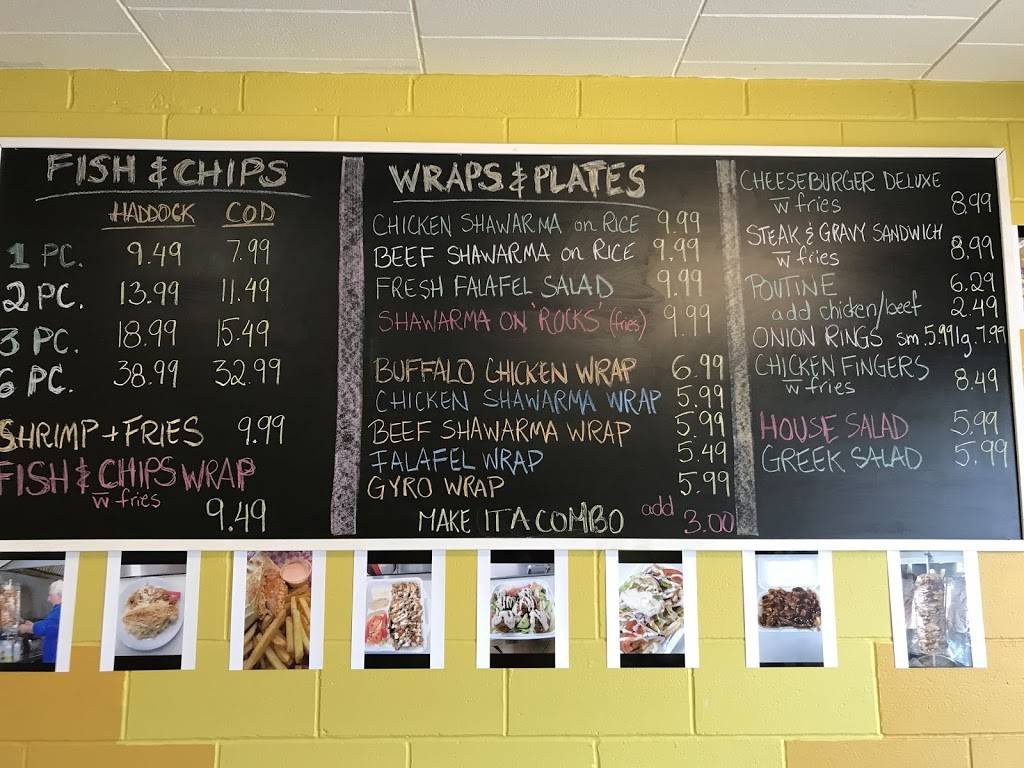 FISH & CHIPS
HADDOCK COD
1 PC. 9.49 7.99
2 PC. 13.99 11.49
3 PC. 18.99 15.49
6 PC. 38.99 32.99
SHRIMP + FRIES 9.99
FISH & CHIPS WRAP
w fries
9.49
WRAPS & PLATES
CHICKEN SHAWARMA on RICE 9.99
BEEF SHAWARMA on RICE 9.99
FRESH FALAFEL SALAD 9.99
SHAWARMA ON 'ROCKS' (fries) 9.99
BUFFALO CHICKEN WRAP 6.99
CHICKEN SHAWARMA WRAP 5.99
BEEF SHAWARMA WRAP 5.99
FALAFEL WRAP 5.49
GYRO WRAP 5.99
MAKE IT A COMBO add 3.00
CHEESEBURGER DELUXE
w fries 8.99
STEAK & GRAVY SANDWICH
w fries 8.99
POUTINE 6.29
add chicken/beef 2.49
ONION RINGS sm 5.99 lg 7.99
CHICKEN FINGERS
w fries 8.49
HOUSE SALAD 5.99
GREEK SALAD 5.99